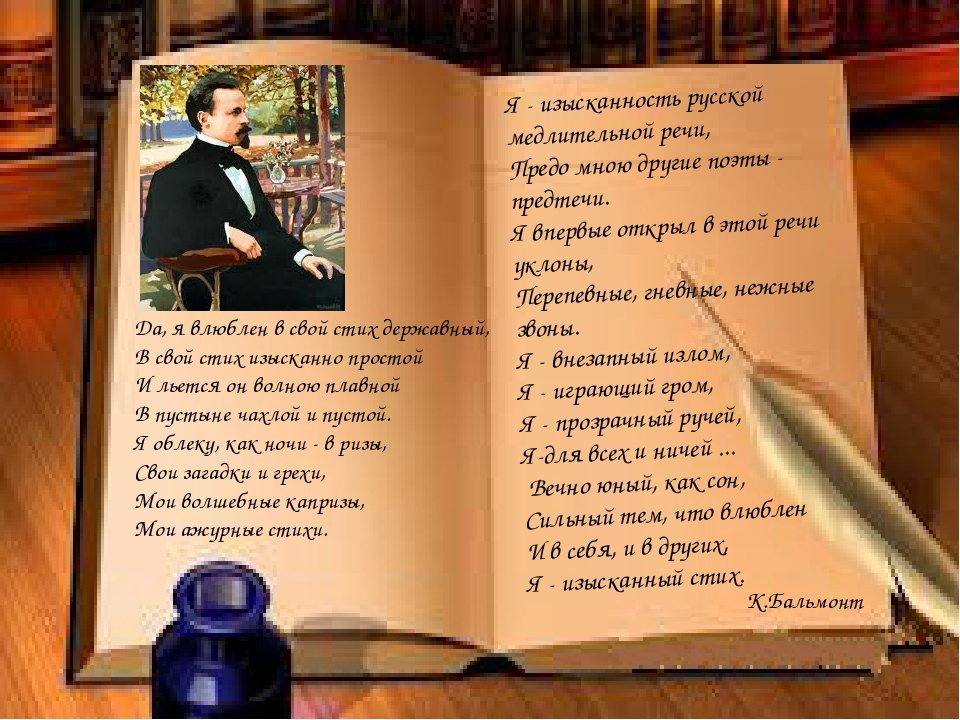 Да, я влюблен в свой стих державный,
В свой стих изысканно простой
И льется он волною плавной
В пустыне чахлой и пустой.
Я облеку, как ночи - в ризы,
Свои загадки и грехи,
Мои волшебные капризы,
Мои ажурные стихи.
Я - изысканность русской
медлительной речи,
Предо мною другие поэты -
предтечи.
Я впервые открыл в этой речи
уклоны,
Перепевные, гневные, нежные
звоны.
Я - внезапный излом,
Я - играющий гром,
Я - прозрачный ручей,
Я-для всех и ничей ...
Вечно юный, как сон,
Сильный тем, что влюблен
И в себя, и в других,
Я - изысканный стих.
К.Бальмонт